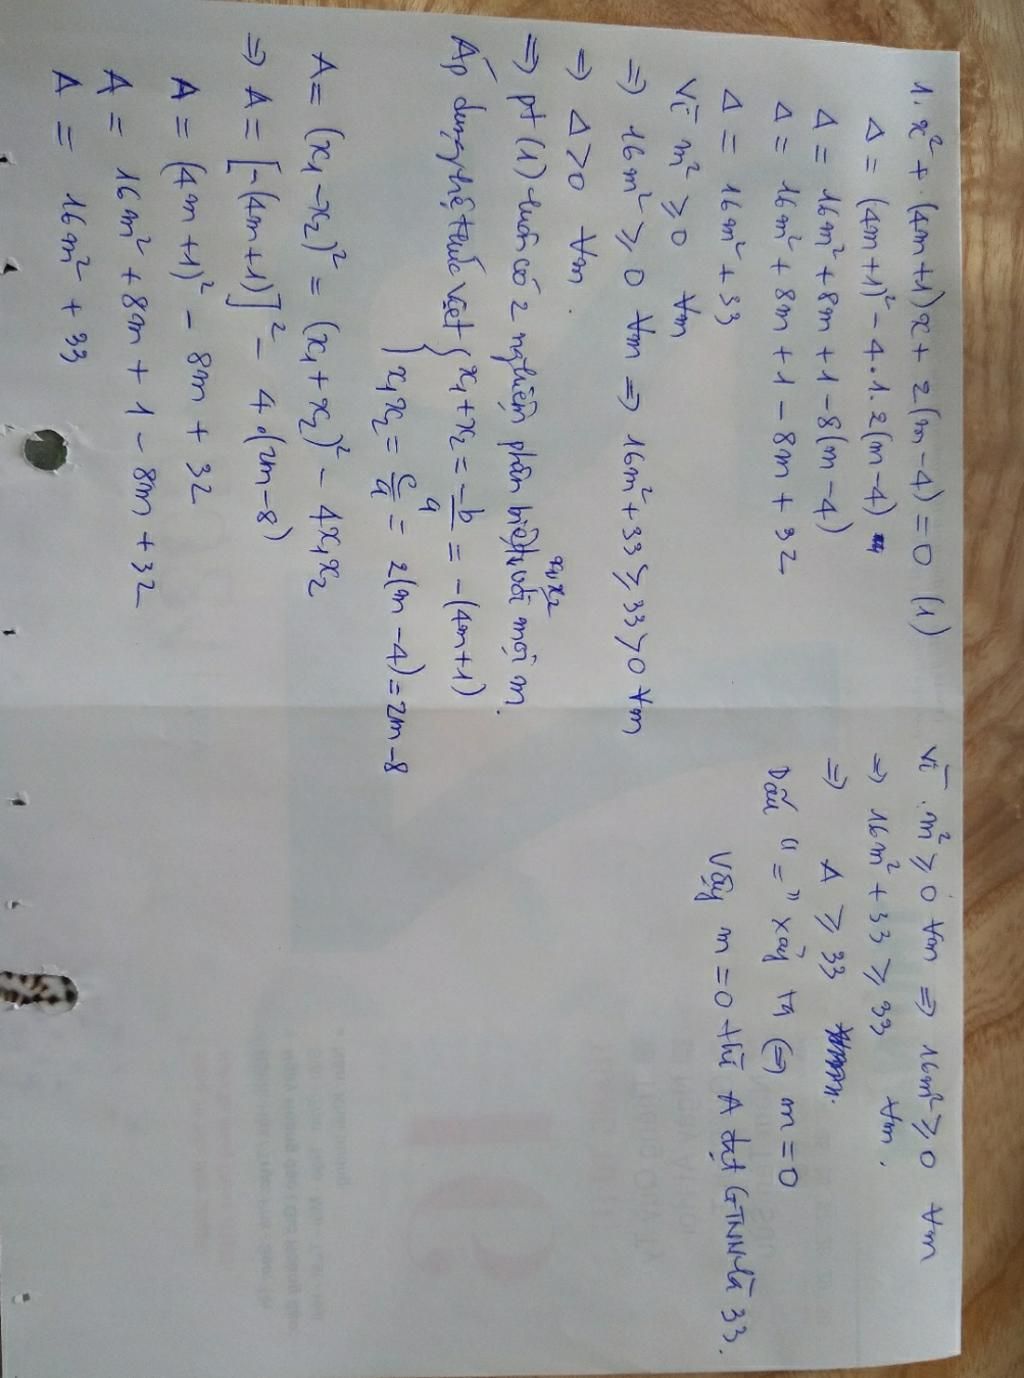 1. x² + (4m+1)x + 2(m-4) = 0 (1)
Δ = (4m+1)² - 4.1.2(m-4)
Δ = 16m² + 8m + 1 - 8(m-4)
Δ = 16m² + 8m + 1 - 8m + 32
Δ = 16m² + 33
Vì m² ≥ 0 ∀m
⇒ 16m² ≥ 0 ∀m ⇒ 16m² + 33 ≥ 33 > 0 ∀m
⇒ Δ > 0 ∀m
⇒ pt (1) luôn có 2 nghiệm phân biệt x₁, x₂ với mọi m.
Áp dụng hệ thức Viét { x₁ + x₂ = -b/a = -(4m+1)
x₁x₂ = c/a = 2(m-4) = 2m-8
A = (x₁-x₂)² = (x₁+x₂)² - 4x₁x₂
⇒ A = [-(4m+1)]² - 4.(2m-8)
A = (4m+1)² - 8m + 32
A = 16m² + 8m + 1 - 8m + 32
A = 16m² + 33
Vì m² ≥ 0 ∀m ⇒ 16m² ≥ 0 ∀m
⇒ 16m² + 33 ≥ 33 ∀m.
⇒ A ≥ 33
Dấu "=" xảy ra ⇔ m = 0
Vậy m = 0 thì A đạt GTNN là 33.